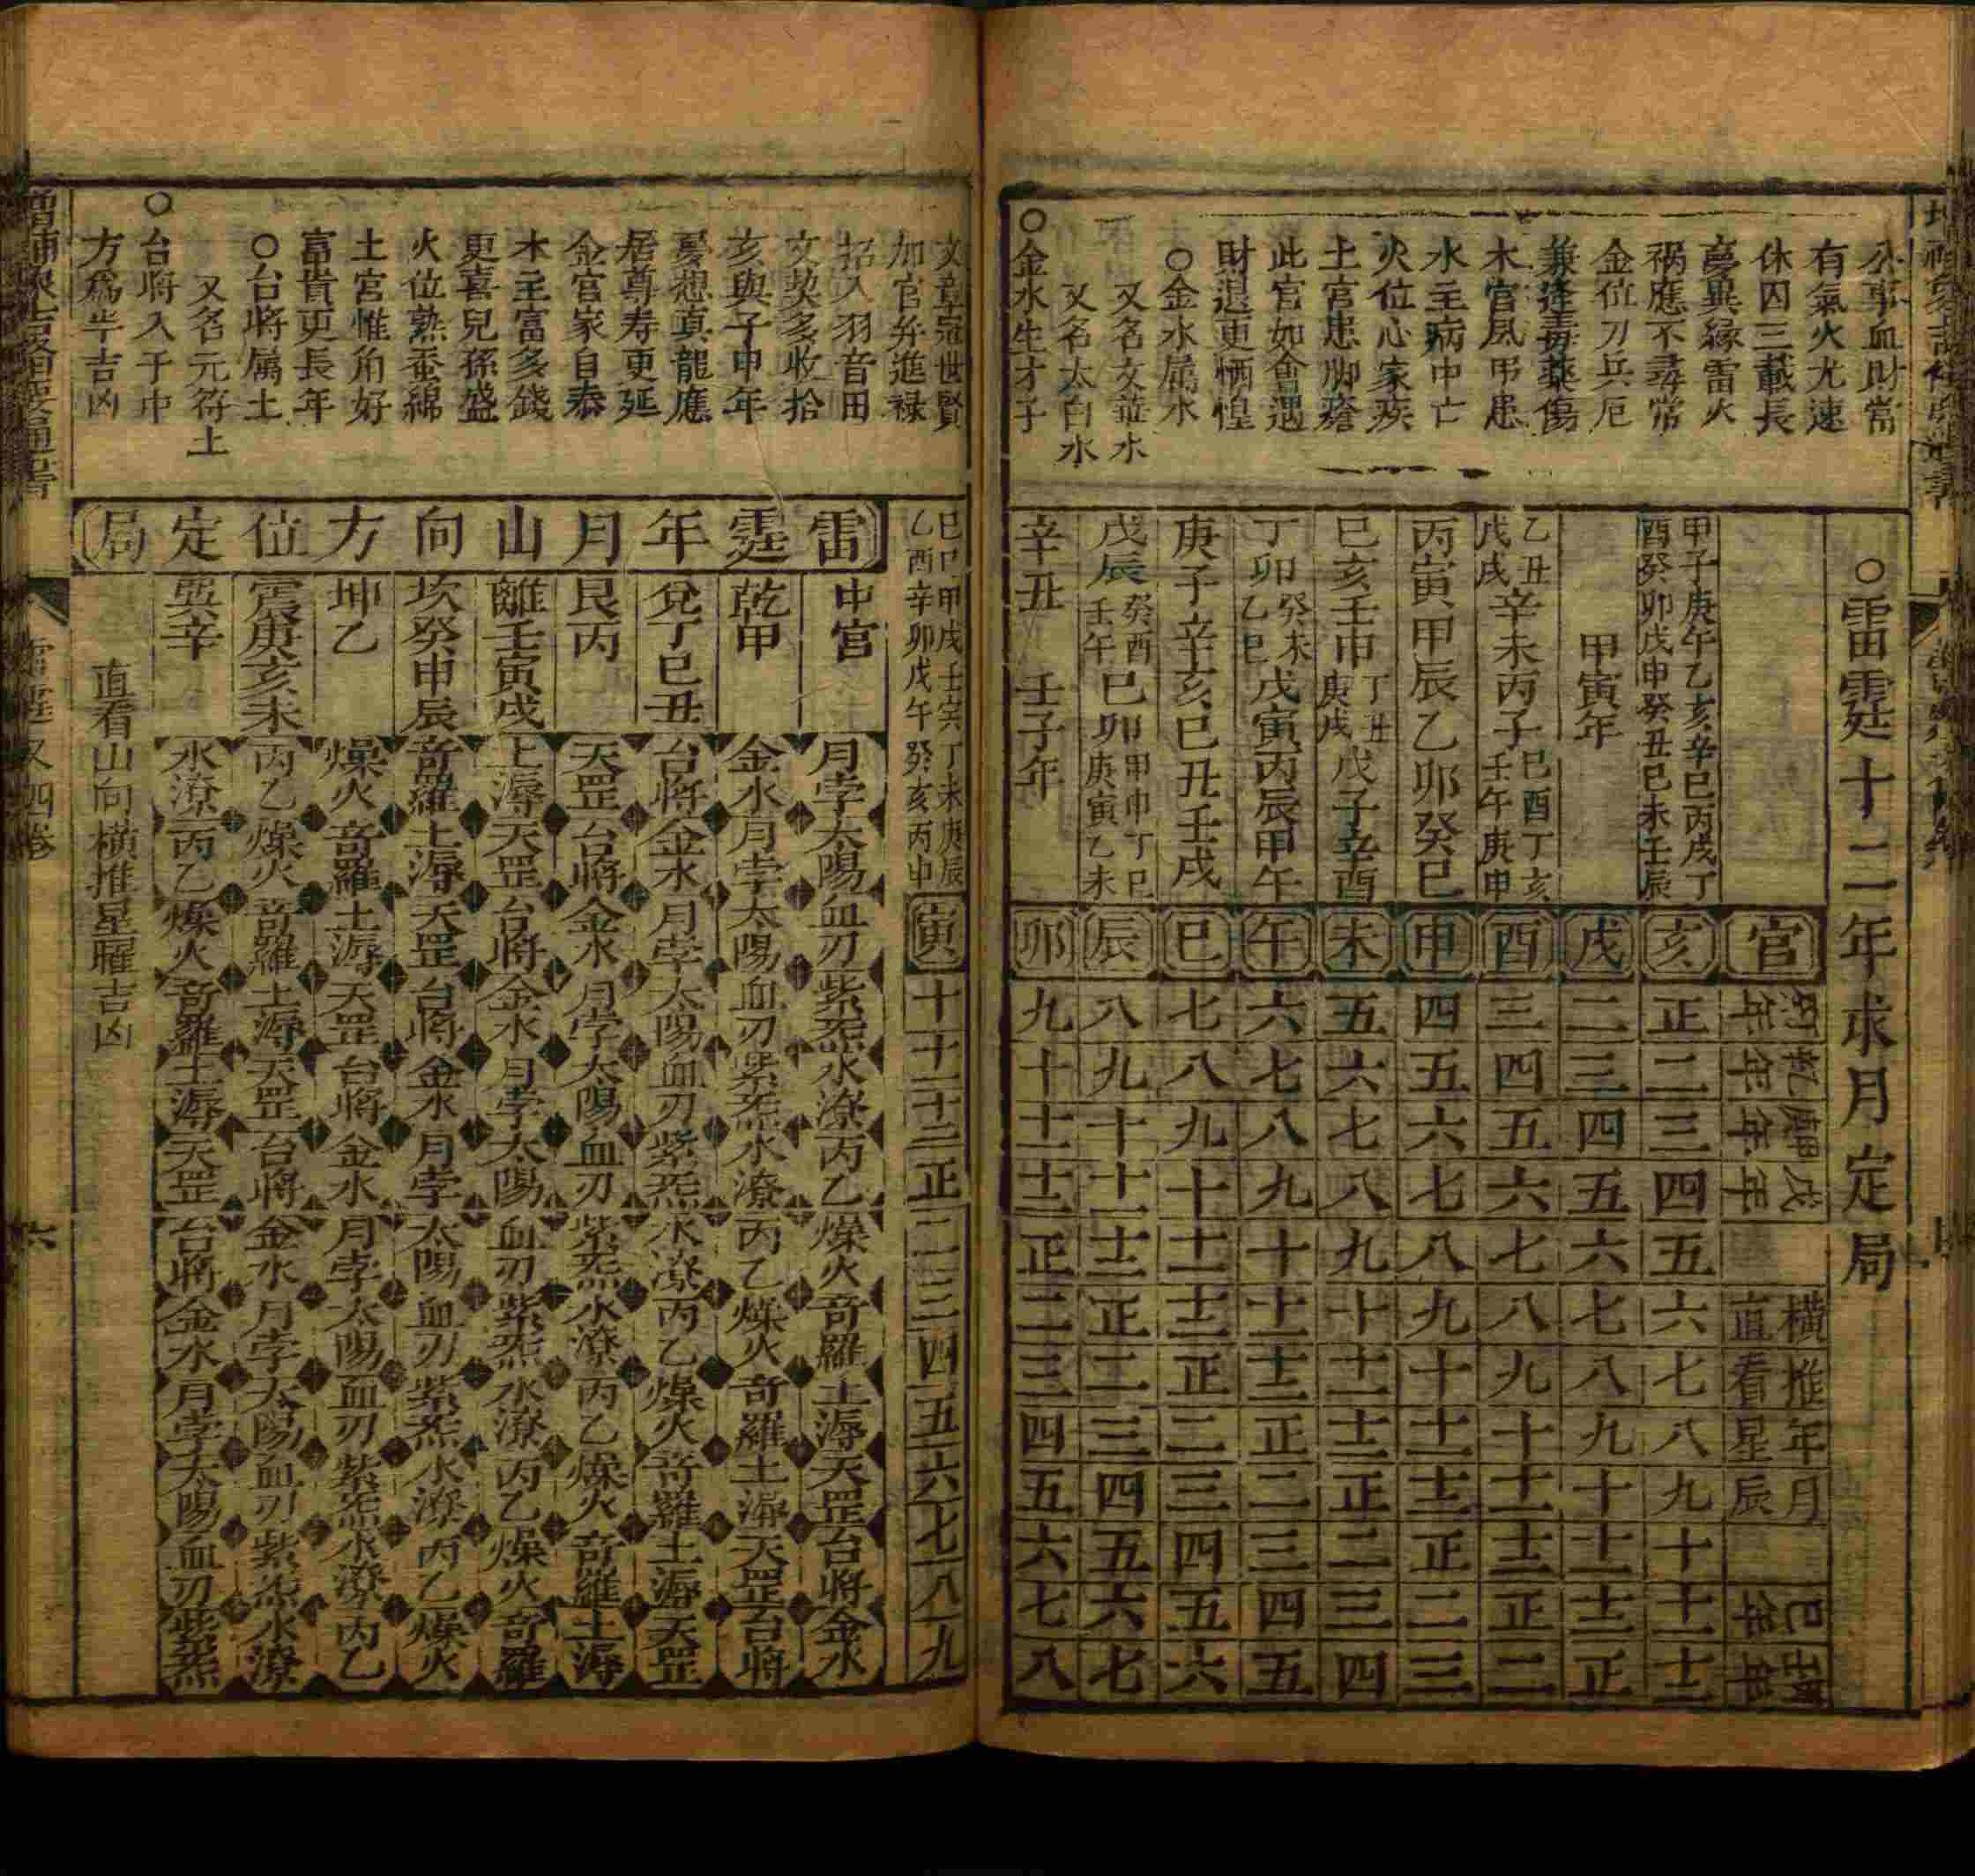 公事血財當
有氣火尤速
休囚三載長
夢異緣雷火
禍應不尋常
金位刀兵厄
兼逢毒藥傷
木宮風吊患
水主病中亡
火位心家疾
土宮患脚瘡
此宮如會遇
財退更恓惶
○金水属水
又名文莊水
又名太白水
○金水生才子
○雷霆十二年求月定局
甲子庚午乙亥辛巳丙戌丁
酉癸卯戊申癸丑巳未壬辰
甲寅年
乙丑戊戌辛未丙子巳酉丁亥壬午庚申
丙寅甲辰乙卯癸巳
巳亥壬申丁丑庚戌戊子辛酉
丁卯癸未乙巳戊寅丙辰甲午
庚子辛亥巳丑壬戌
戊辰癸酉壬午巳卯甲申丁巳庚寅乙未
辛丑 壬子年
官亥戌酉申未午巳辰卯
正二三四五六七八九
二三四五六七八九十
三四五六七八九十十一
四五六七八九十十一十二
五六七八九十十一十二正
六七八九十十一十二正二
七八九十十一十二正二三
八九十十一十二正二三四
九十十一十二正二三四五
十十一十二正二三四五六
十一十二正二三四五六七
十二正二三四五六七八
橫推年月
直看星辰
文章冠世賢
加官并進祿
招入羽音田
文契多收拾
亥與子申年
憂想真龍應
居尊寿更延
金宮家自泰
木主富多錢
更喜兒孫盛
火位熟蚕綿
土宮惟角好
富貴更長年
○台將属土
又名元符土
○台將入于中
方爲半吉凶
巳巳甲戌壬寅丁未庚辰
乙酉辛卯戊午癸亥丙申
寅
十
十一
十二
正
二
三
四
五
六
七
八
九
雷霆年月山向方位定局
中宮 月孛太陽血刃紫炁水潦丙乙燥火奇羅土溽天罡台將金水
乾甲 金水月孛太陽血刃紫炁水潦丙乙燥火奇羅土溽天罡台將
兌丁巳丑 台將金水月孛太陽血刃紫炁水潦丙乙燥火奇羅土溽天罡
艮丙 天罡台將金水月孛太陽血刃紫炁水潦丙乙燥火奇羅土溽
離壬寅戌 土溽天罡台將金水月孛太陽血刃紫炁水潦丙乙燥火奇羅
坎癸申辰 奇羅土溽天罡台將金水月孛太陽血刃紫炁水潦丙乙燥火
坤乙 燥火奇羅土溽天罡台將金水月孛太陽血刃紫炁水潦丙乙
震庚亥未 丙乙燥火奇羅土溽天罡台將金水月孛太陽血刃紫炁水潦
巽辛 水潦丙乙燥火奇羅土溽天罡台將金水月孛太陽血刃紫炁
直看山向橫推星曜吉凶
雷霆 又四卷
六